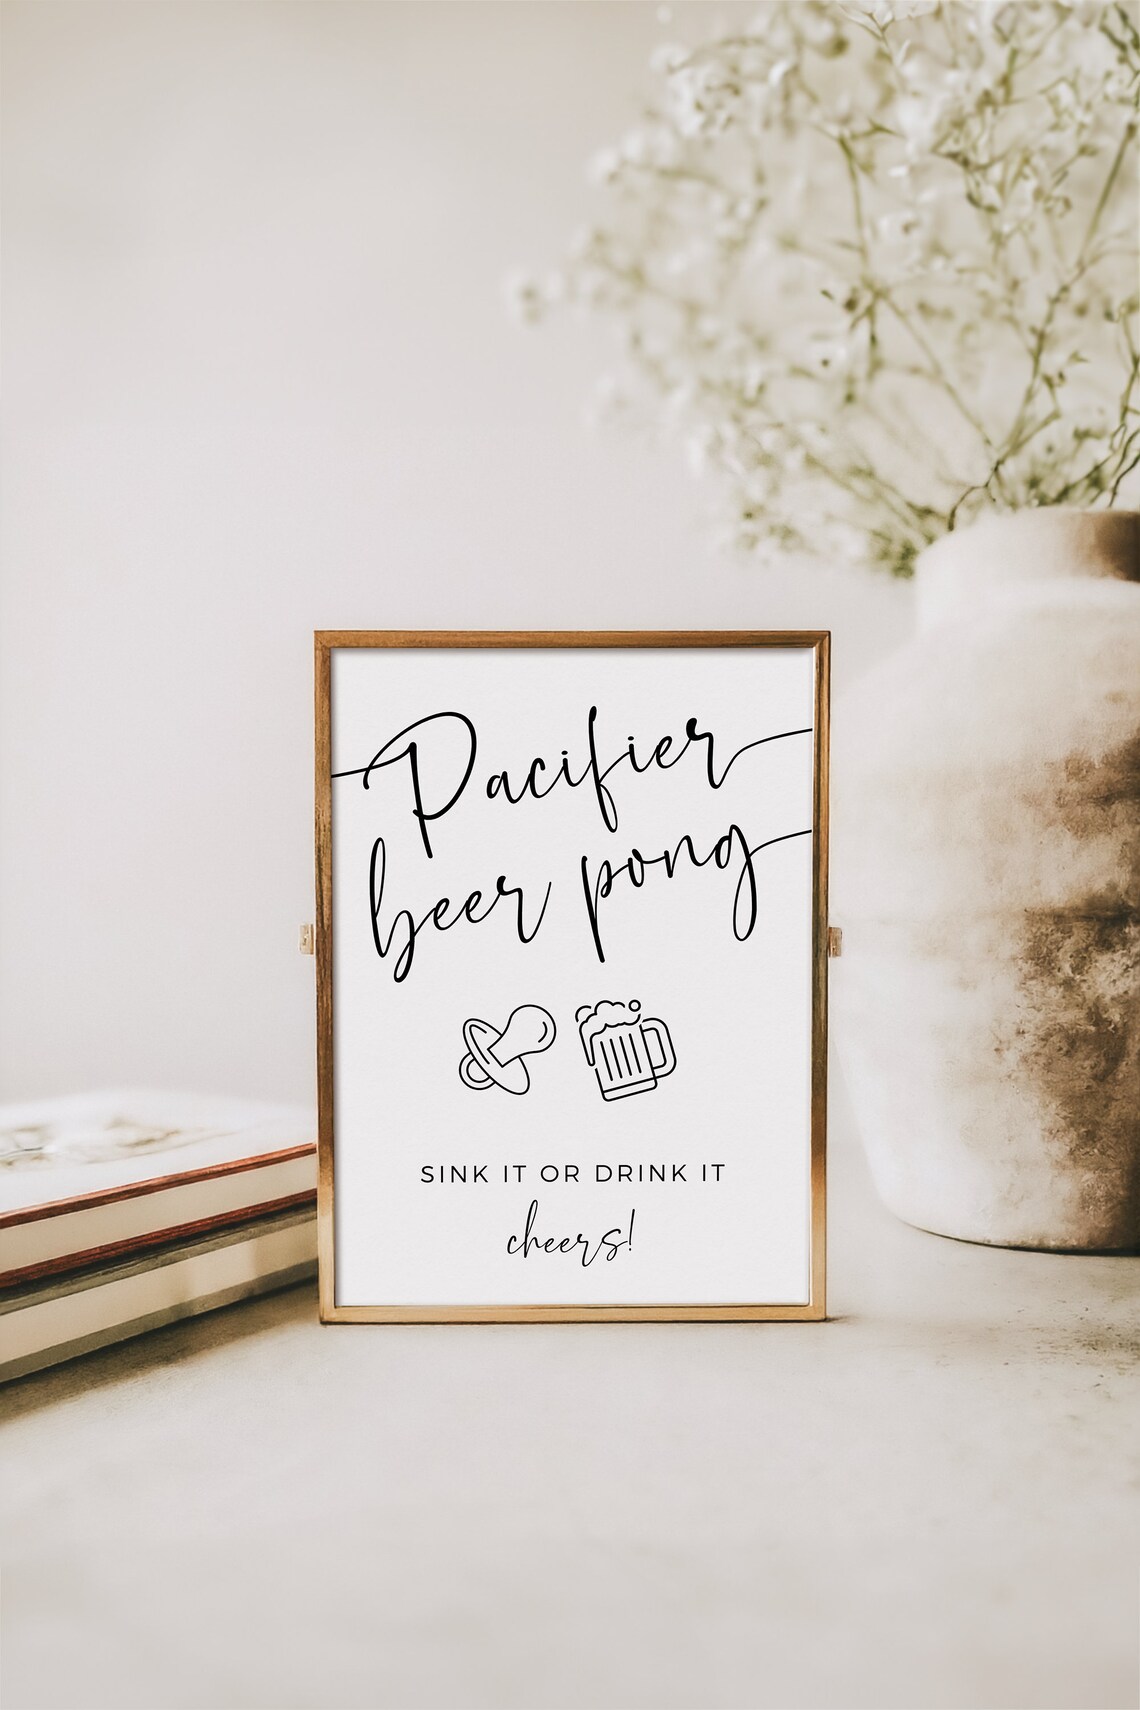 Pacifier
beer pong
SINK IT OR DRINK IT
cheers!